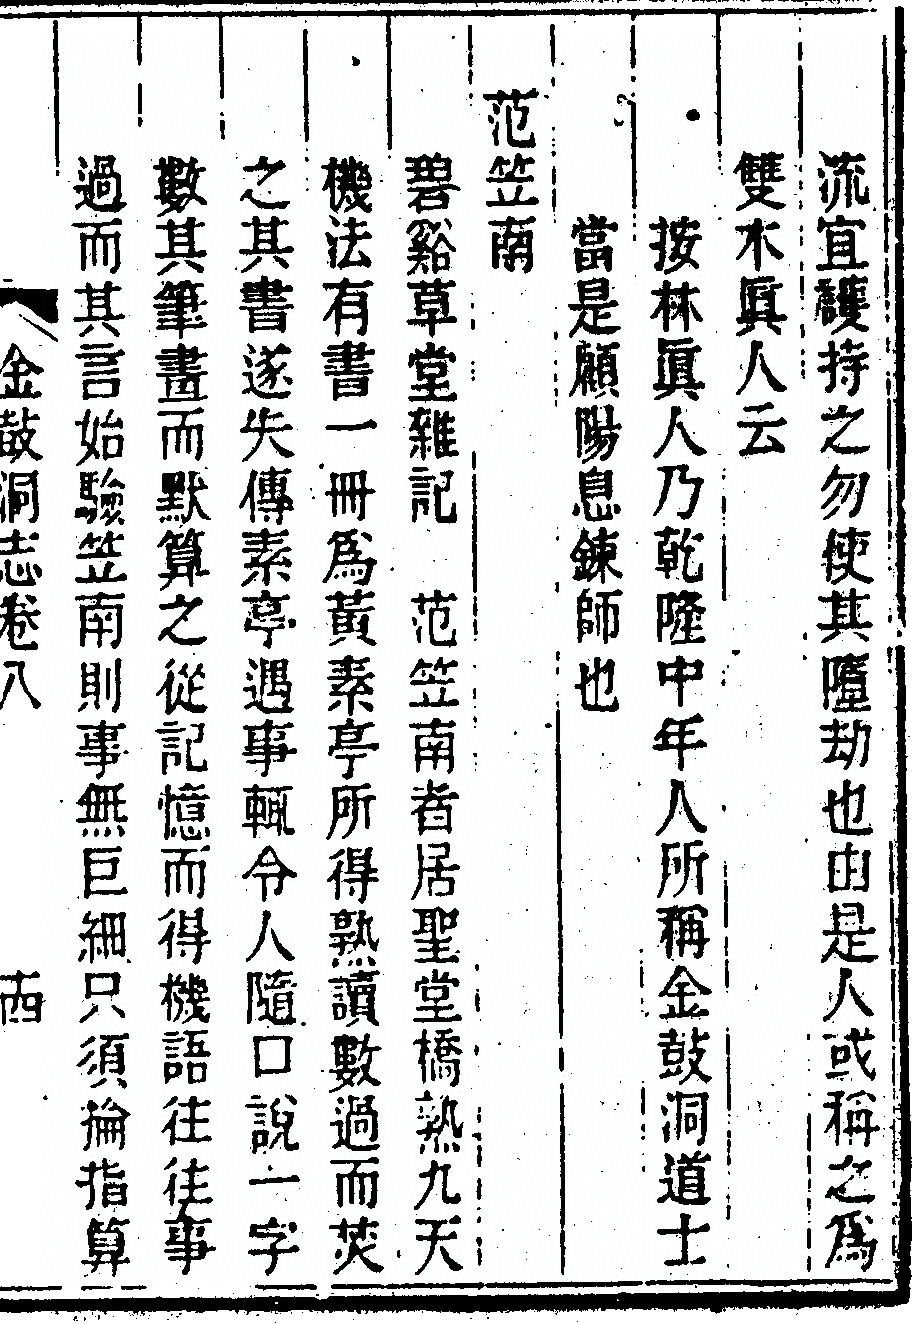 流宜護持之勿使其墮劫也由是人或稱之爲
雙木眞人云
按林眞人乃乾隆中年人所稱金鼓洞道士
當是顧陽息鍊師也
范笠南
碧谿草堂雜記　范笠南者居聖堂橋熟九天
機法有書一冊爲黃素亭所得熟讀數過而焚
之其書遂失傳素亭遇事輒令人隨口說一字
數其筆畫而默算之從記憶而得機語往往事
過而其言始驗笠南則事無巨細只須掄指算
金鼓洞志卷八